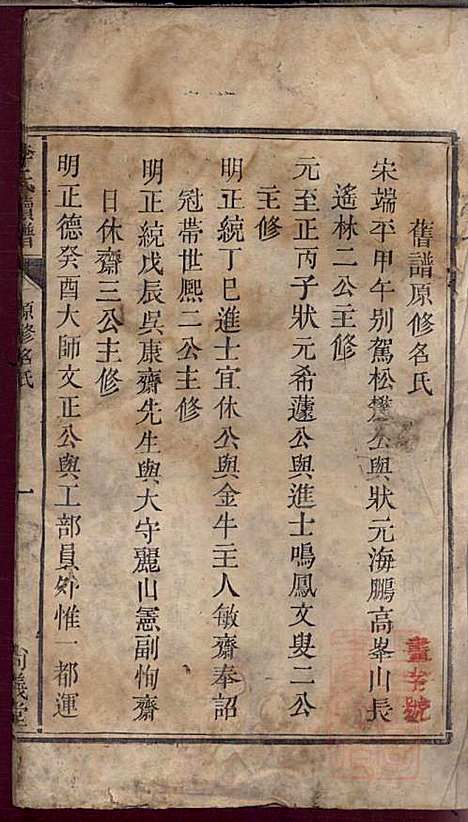 舊譜原修名氏
宋端平甲午別駕松公與狀元海鵬高峯山長
遙林二公主修
元至正丙子狀元希蘧公與進士鳴鳳文叟二公
主修
明正統丁巳進士宜休公與金牛王人敏齋奉詔
冠帶世熈二公主修
明正統戊辰吳康齋先生與大守麗山憲副恂齋
日休齋三公主修
明正德癸酉大師文正公與工部員外惟一都運
氏續譜
原修名氏
一
義堂
號